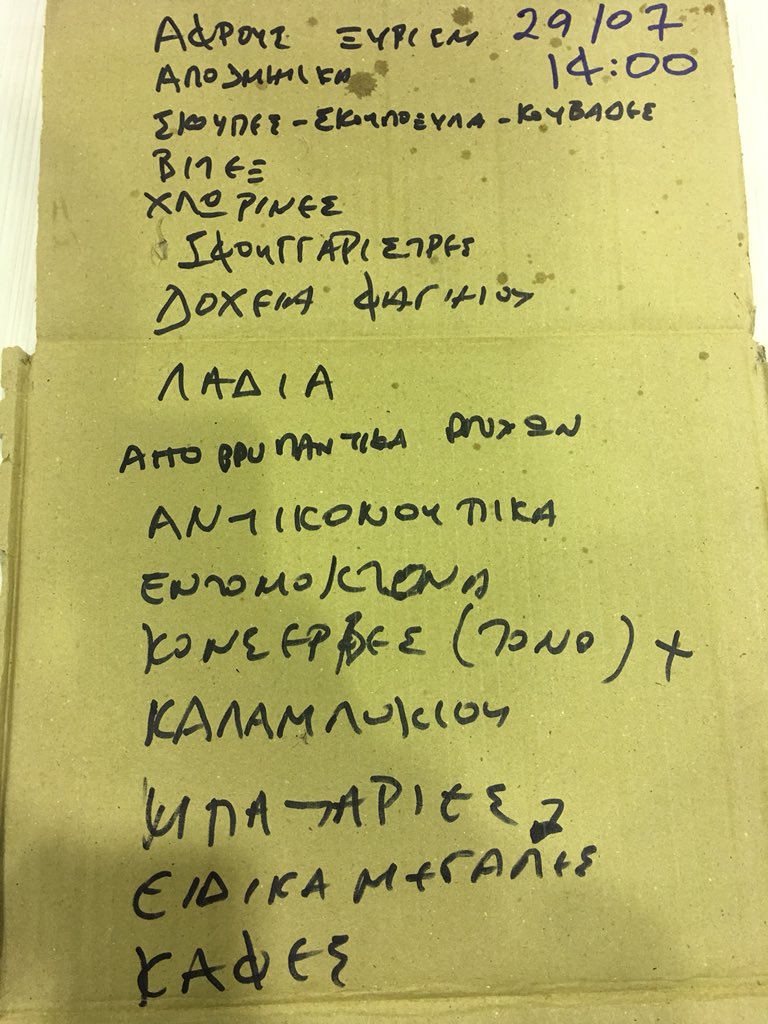 ΑΦΡΟΥΣ ΞΥΡΙΣΜ 29/07
ΑΠΟΣΜΗΤΙΚΑ 14:00
ΣΚΟΥΠΕΣ - ΣΚΟΥΠΟΞΥΛΑ - ΚΟΥΒΑΔΕΣ
ΒΙΤΕΞ
ΧΛΩΡΙΝΕΣ
ΣΦΟΥΓΓΑΡΙΣΤΡΕΣ
ΔΟΧΕΙΑ ΦΑΓΗΤΟΥ
ΛΑΔΙΑ
ΑΠΟΡΡΥΠΑΝΤΙΚΑ ΡΟΥΧΩΝ
ΑΝΤΙΚΟΝΟΥΠΙΚΑ
ΕΝΤΟΜΟΚΤΟΝΑ
ΚΟΝΣΕΡΒΕΣ (ΤΟΝΟ) +
ΚΑΛΑΜΠΟΚΙΟΥ
ΜΠΑΤΑΡΙΕΣ,
ΕΙΔΙΚΑ ΜΕΓΑΛΕΣ
ΚΑΦΕΣ